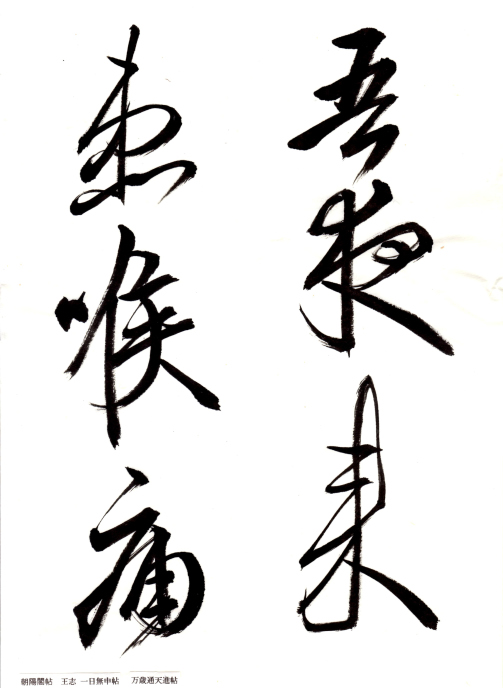 吾夜来
患喉痛
朝陽閣帖　王志 一日無申帖　万歳通天進帖